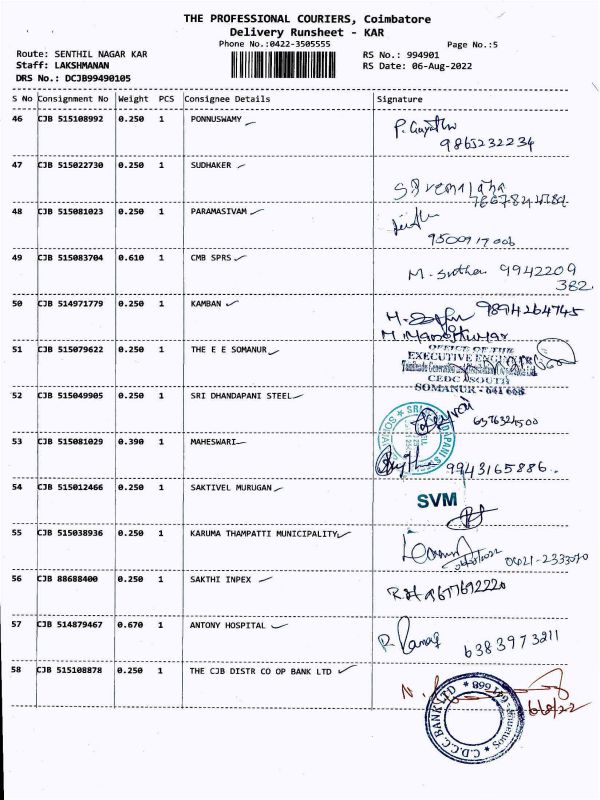 THE PROFESSIONAL COURIERS, Coimbatore
Delivery Runsheet - KAR
Phone No.:0422-3505555
Page No.:5
Route: SENTHIL NAGAR KAR
RS No.: 994901
Staff: LAKSHMANAN
RS Date: 06-Aug-2022
DRS No.: DCJB99490105
S No Consignment No Weight PCS Consignee Details Signature
46 CJB 515108992 0.250 1 PONNUSWAMY
9865232234
47 CJB 515022730 0.250 1 SUDHAKER
48 CJB 515081023 0.250 1 PARAMASIVAM
9500917006
49 CJB 515083704 0.610 1 CMB SPRS
9942209
382
50 CJB 514971779 0.250 1 KAMBAN 9894264745
51 CJB 515079622 0.250 1 THE E E SOMANUR
OFFICE OF THE
EXECUTIVE
CEDC SOUTH
SOMANUR - 641 668
52 CJB 515049905 0.250 1 SRI DHANDAPANI STEEL
53 CJB 515081029 0.390 1 MAHESWARI
9943165886.
54 CJB 515012466 0.250 1 SAKTIVEL MURUGAN
SVM
55 CJB 515038936 0.250 1 KARUMA THAMPATTI MUNICIPALITY
56 CJB 88688400 0.250 1 SAKTHI INPEX
57 CJB 514879467 0.670 1 ANTONY HOSPITAL
6383973211
58 CJB 515108878 0.250 1 THE CJB DISTR CO OP BANK LTD
C.D.C.C. BANK LTD